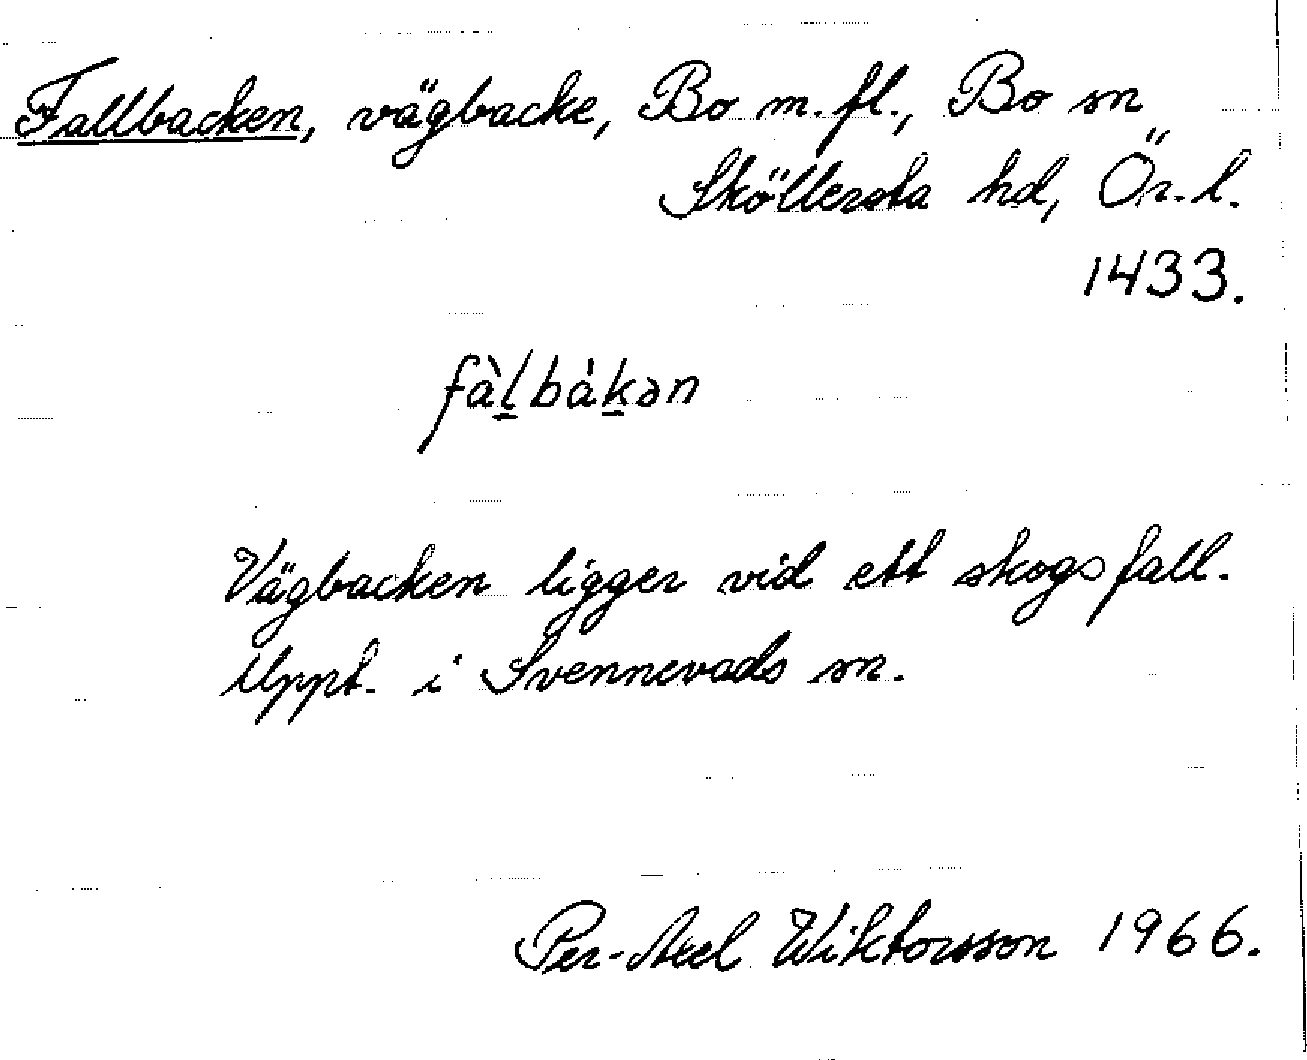 Fallbacken, vägbacke, Bo m.fl., Bo sn
Sköllersta hd, Ör.l.
1433.
fàl̠bák̠ən
Vägbacken ligger vid ett skogsfall.
Uppt. i Svennevads sn.
Per-Axel Wiktorsson 1966.